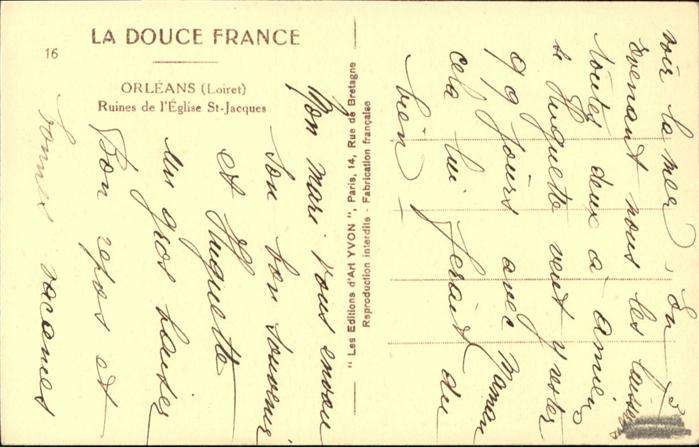 16
LA DOUCE FRANCE
ORLÉANS (Loiret)
Ruines de l'Église St-Jacques
" Les Editions d'Art YVON ", Paris, 14, Rue de Bretagne
Reproduction interdite - Fabrication française
voir la mer, En
revenant nous les laissons
toutes deux à Amiens
si Huguette veut y rester
9 jours avec Maman
cela lui ferait du
bien —
Mon mari vous envoie
son bon souvenir
et Huguette
un gros baiser
Bon repos et
bonnes vacances